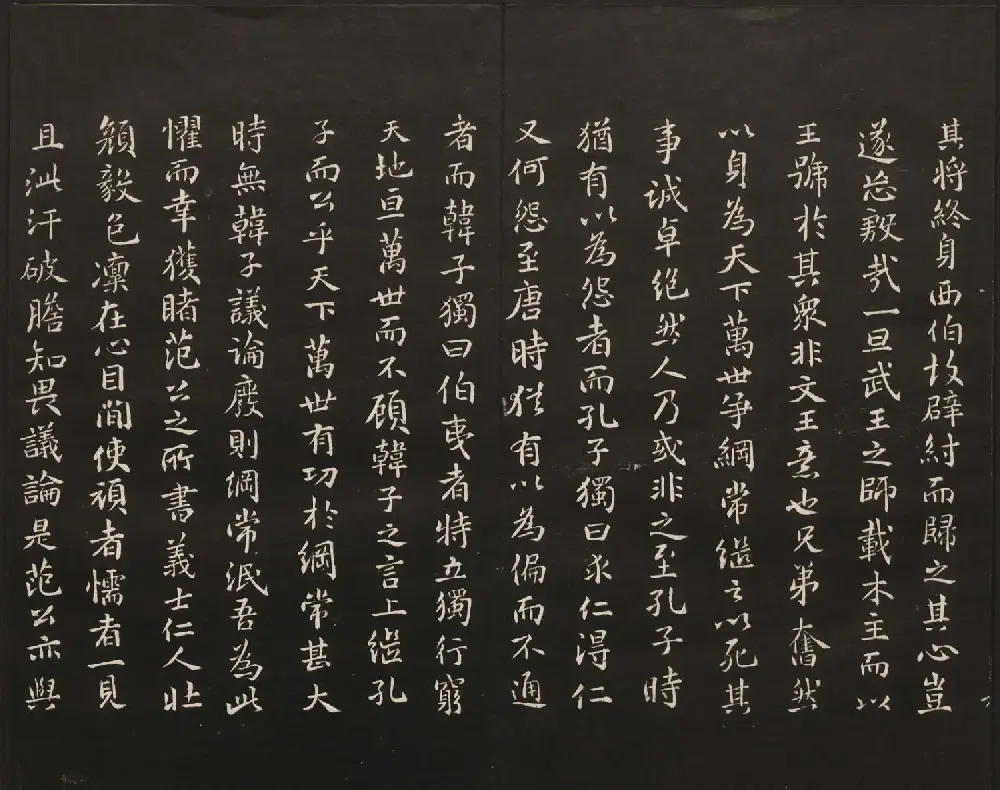 其將終身西伯故辟紂而歸之其心豈
遂忘殷哉一旦武王之師載木主而以
王號於其眾非文王意也兄弟奮然
以身為天下萬世爭綱常繼之以死其
事誠卓絕然人乃或非之至孔子時
猶有以為怨者而孔子獨曰求仁得仁
又何怨至唐時猶有以為偏而不通
者而韓子獨曰伯夷者特立獨行窮
天地亘萬世而不顧韓子之言上繼孔
子而公乎天下萬世有功於綱常甚大
時無韓子議論廢則綱常泯吾為此
懼而幸獲睹范公之所書義士仁人壯
顏毅色凜在心目間使頑者懦者一見
且泚汗破膽知畏議論是范公亦與